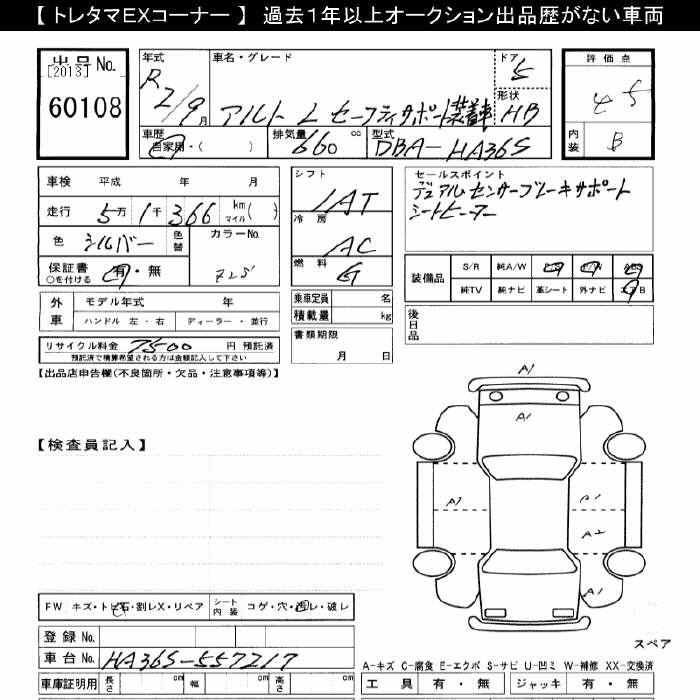 【 トレタマEXコーナー 】 過去1年以上オークション出品歴がない車両
出品No.
[2013]
60108
年式
R2/9月
車名・グレード
アルト L セーフティサポート装着車
ドア
5
形状
HB
車歴
自家用・( )
排気量
660 cc
型式
DBA-HA36S
評価点
4.5
内装
B
車検 平成 年 月
走行 5万1千366 km マイル( )
色 シルバー 色替
カラーNo.
保証書 ○を付ける 有・無
外車
モデル年式 年
ハンドル 左・右 ディーラー・並行
リサイクル料金 7500 円 預託済
預託済で精算希望される方は金額記入して下さい
シフト
IAT
冷房
AC
燃料
G
乗車定員 名
積載量 kg
書類期限
月 日
セールスポイント
デュアルセンサーブレーキサポート
シートヒーター
装備品
S/R 純A/W P/S P/W ABS
純TV 純ナビ 革シート 外ナビ エアB
後日品
【出品店申告欄(不良箇所・欠品・注意事項等)】
【検査員記入】
A1
A1
A1
A2
A1
FW キズ・トビ石・割レX・リペア
シート内装 コゲ・穴・汚レ・破レ
登録No.
車台No. HA36S-557217
車庫証明用 長さ cm 幅 cm 高さ cm
スペア
A-キズ C-腐食 E-エクボ S-サビ U-凹ミ W-補修 XX-交換済
工具 有・無 ジャッキ 有・無